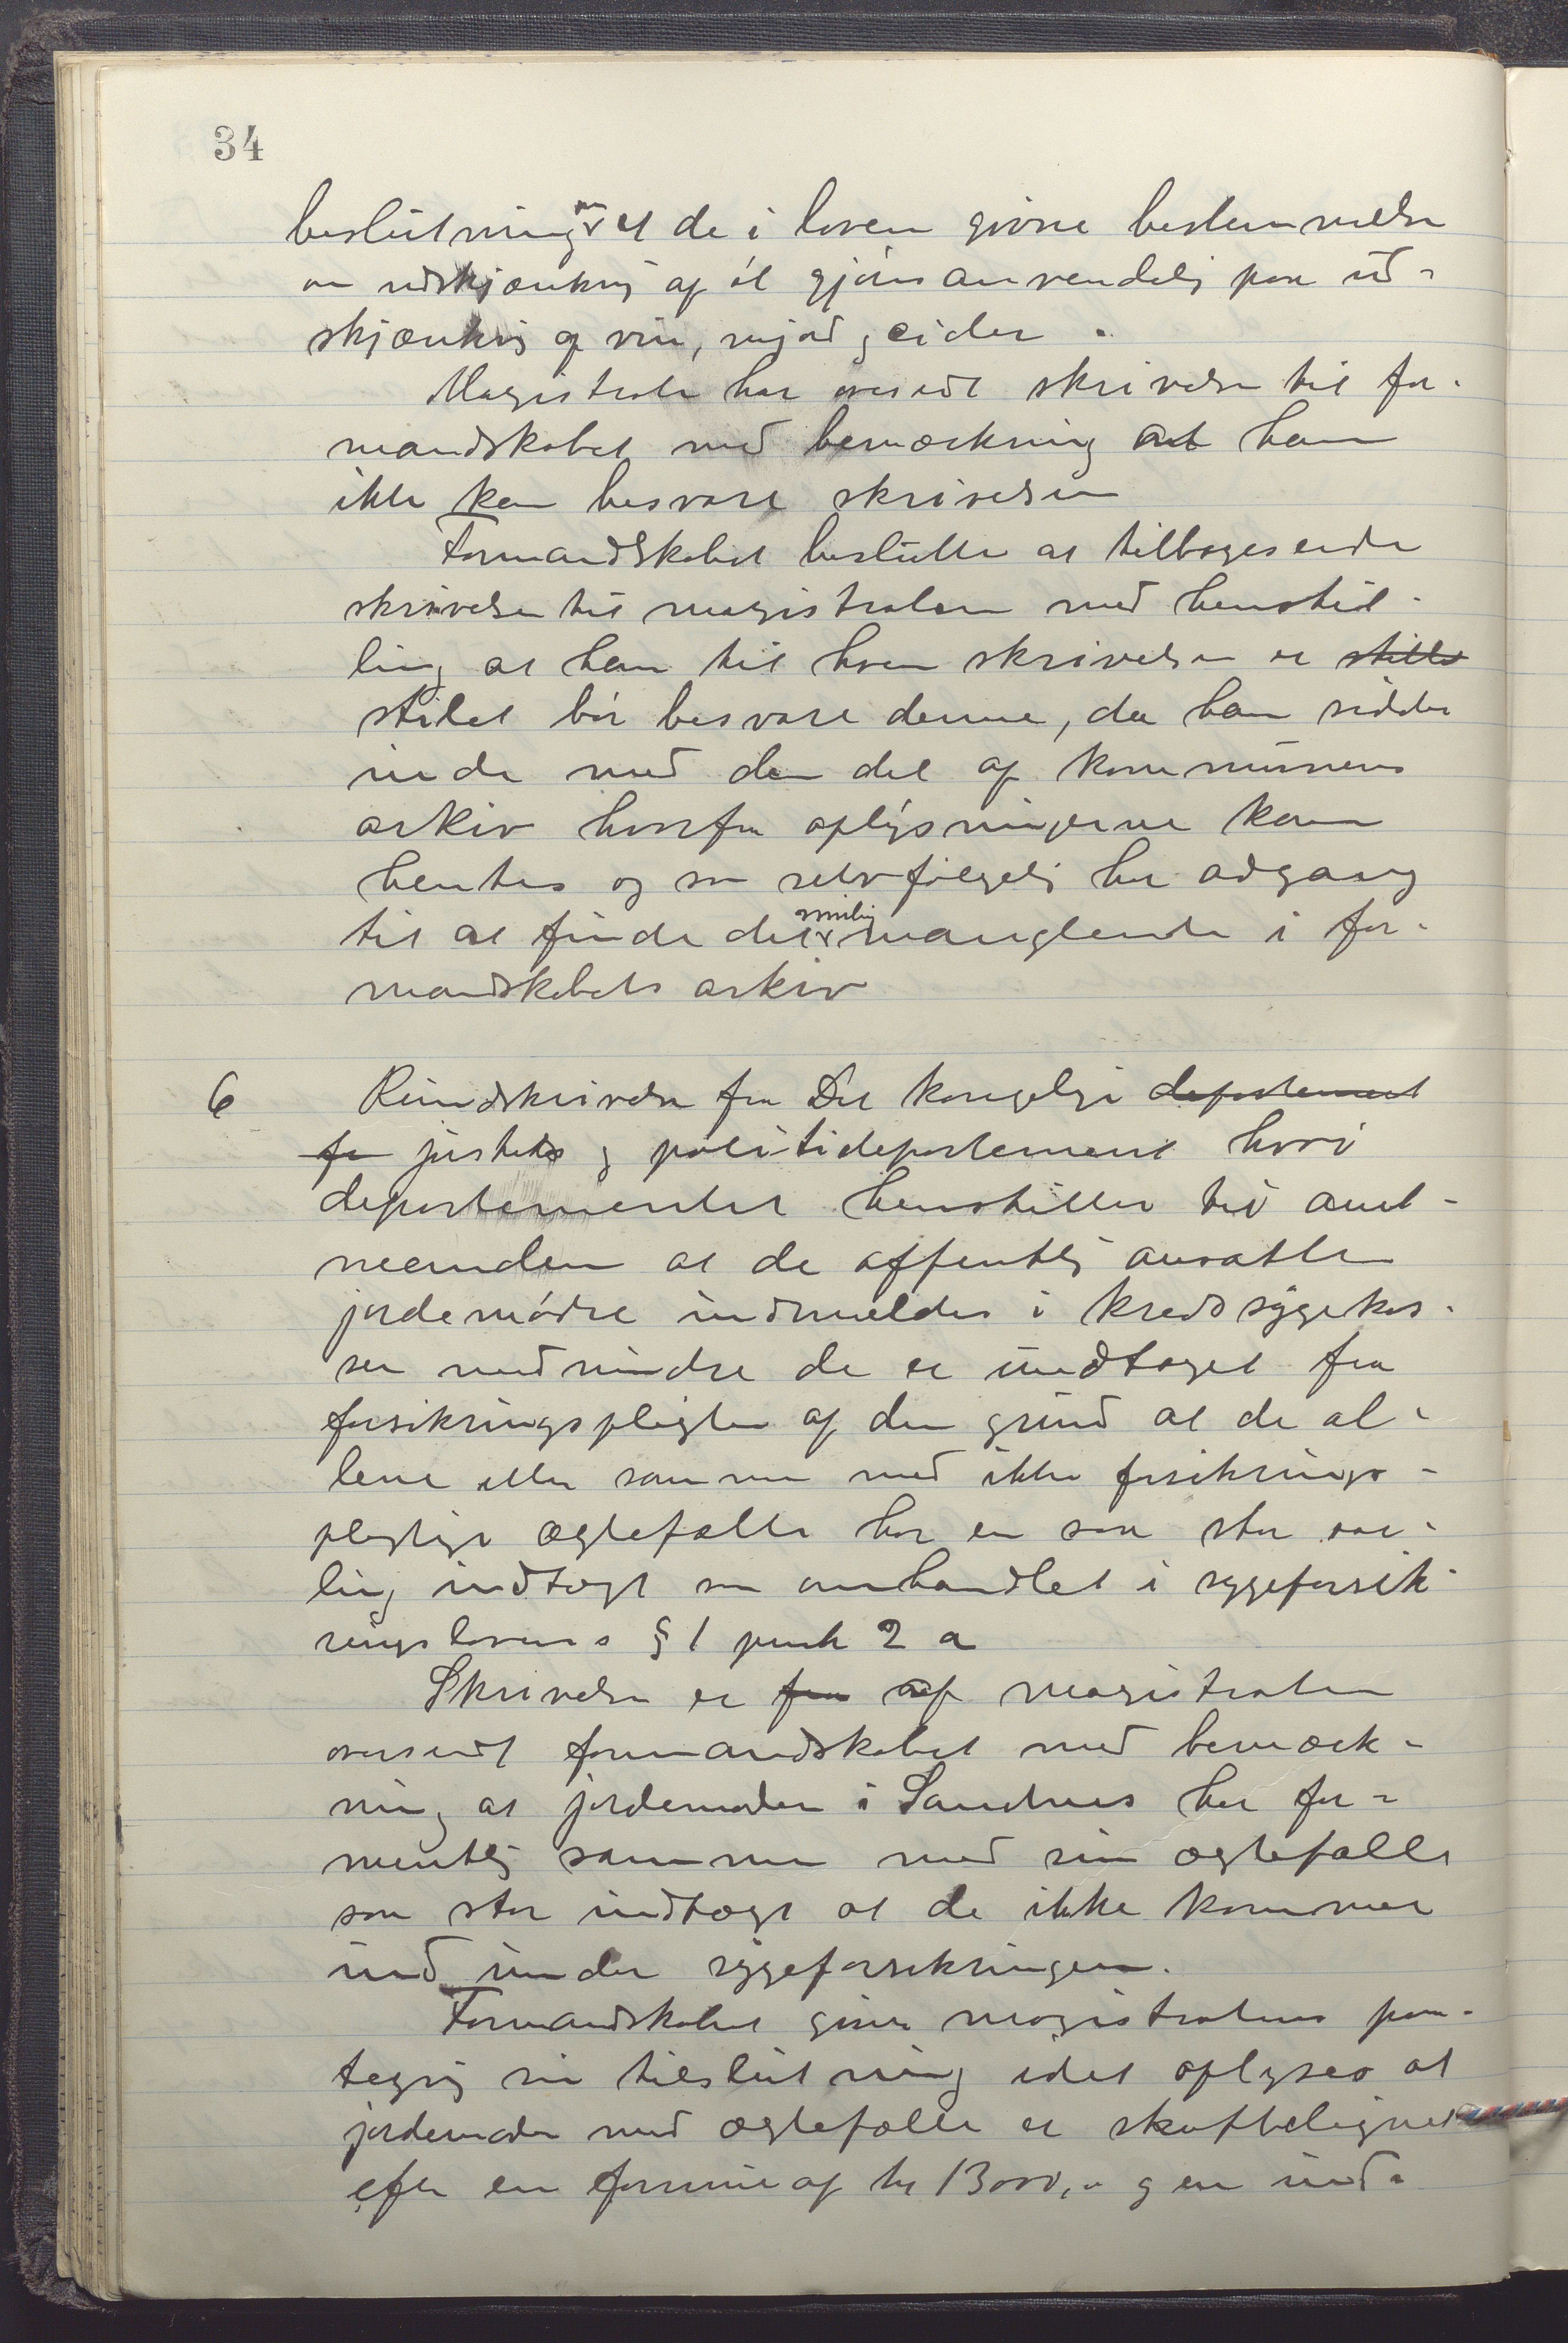 34
beslutning om at de i loven givne bestemmelse
om udskjænkning af øl gjøres anvendelig paa ud-
skjænkning af vin, mjød og cider.
Magistraten har oversedt skrivelse til for-
mandskabet med bemærkning at han
ikke kan besvare skrivelsen
Formandskabet beslutter at tilbagesende
skrivelse til magistraten med henstil-
ling at han til hvem skrivelsen er stillet
stilet bør besvare denne, da han sidder
inde med den del af kommunens
arkiv hvorfra oplysningerne kan
hentes og som selvfølgelig har adgang
til at finde det mulig manglende i for-
mandskabets arkiv
6 Rundskrivelse fra Det kongelige departement
for justits og politidepartement hvori
departementet henstiller til amt-
mænden at de offentlig ansatte
jordemødre indmeldes i kredssygekas-
sen medmindre de er undtaget fra
forsikringspligten af den grund at de al-
lene eller sammen med ikke forsikrings-
pligtige ægtefælle har en saa stor aar-
lig indtægt som omhandlet i sygeforsik-
ringslovens § 1 punkt 2 a
Skrivelsen er fra af magistraten
oversendt formandskabet med bemærk-
ning at jordemoderen i Sandnes har for-
mentlig sammen med sin ægtefælle
saa stor indtægt at de ikke kommer
ind under sygeforsikringen.
Formandskabet giver magistratens paa-
tegning sin tilslutning idet oplyses at
jordemoder med ægtefælle er skattelignet
efter en formue af kr 13000,- og en ind-